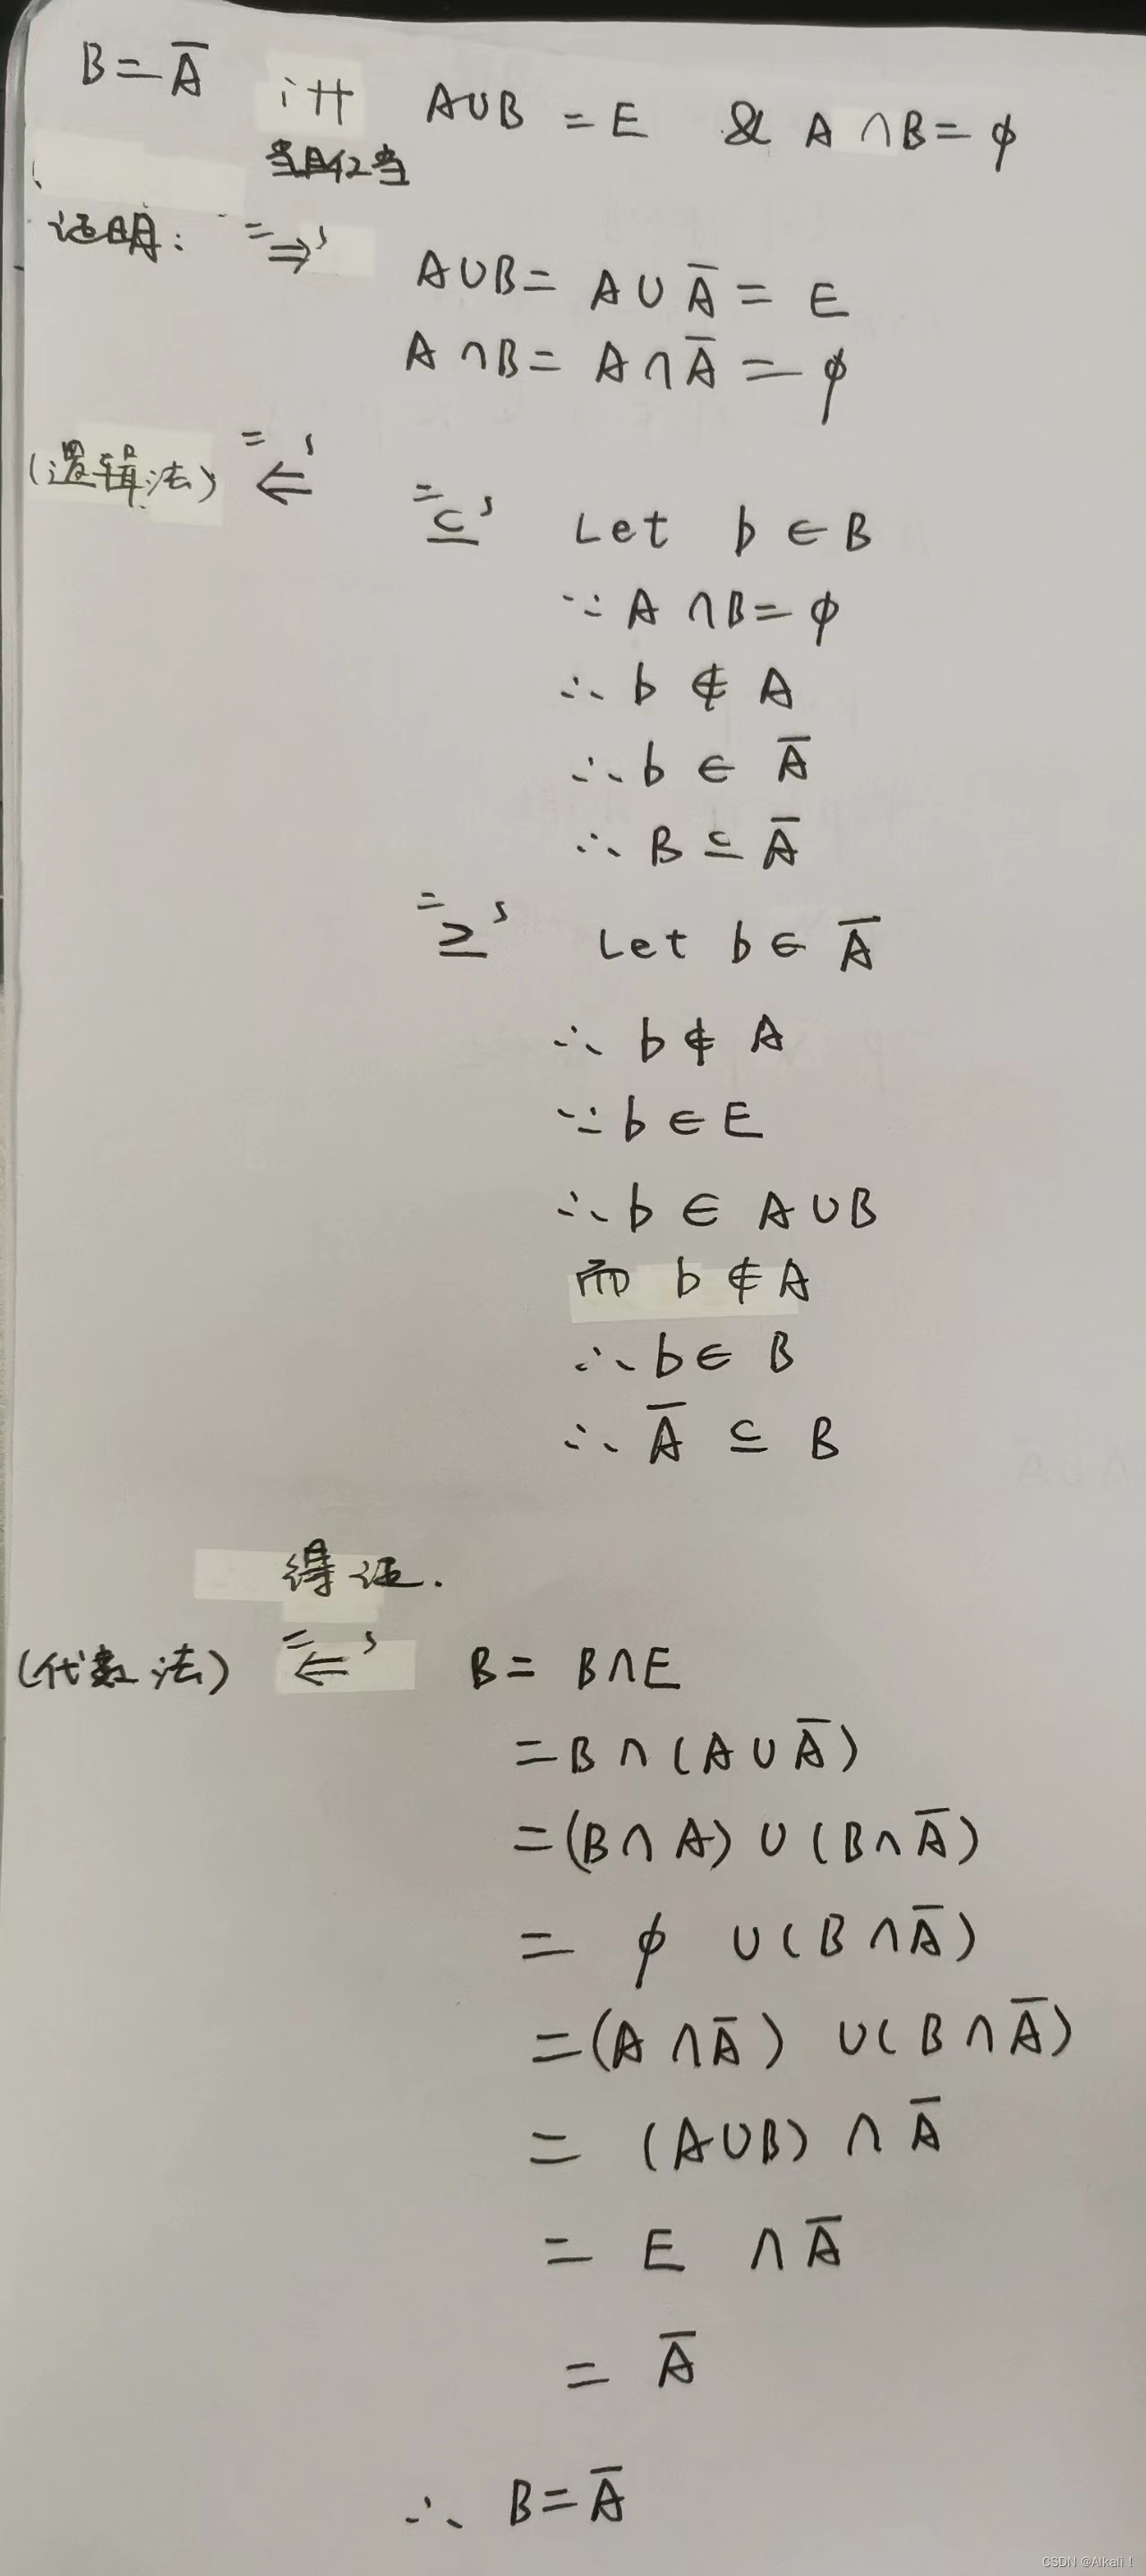 B = A̅ iff A∪B = E & A∩B = φ
当且仅当
证明: "⇒" A∪B = A∪A̅ = E
A∩B = A∩A̅ = φ
(逻辑法) "⇐" "⊆" Let b ∈ B
∵ A∩B = φ
∴ b ∉ A
∴ b ∈ A̅
∴ B ⊆ A̅
"⊇" Let b ∈ A̅
∴ b ∉ A
∵ b ∈ E
∴ b ∈ A∪B
而 b ∉ A
∴ b ∈ B
∴ A̅ ⊆ B
得证.
(代数法) "⇐" B = B∩E
= B∩(A∪A̅)
= (B∩A)∪(B∩A̅)
= φ ∪(B∩A̅)
= (A∩A̅) ∪(B∩A̅)
= (A∪B)∩A̅
= E ∩A̅
= A̅
∴ B = A̅
CSDN @Alkali !